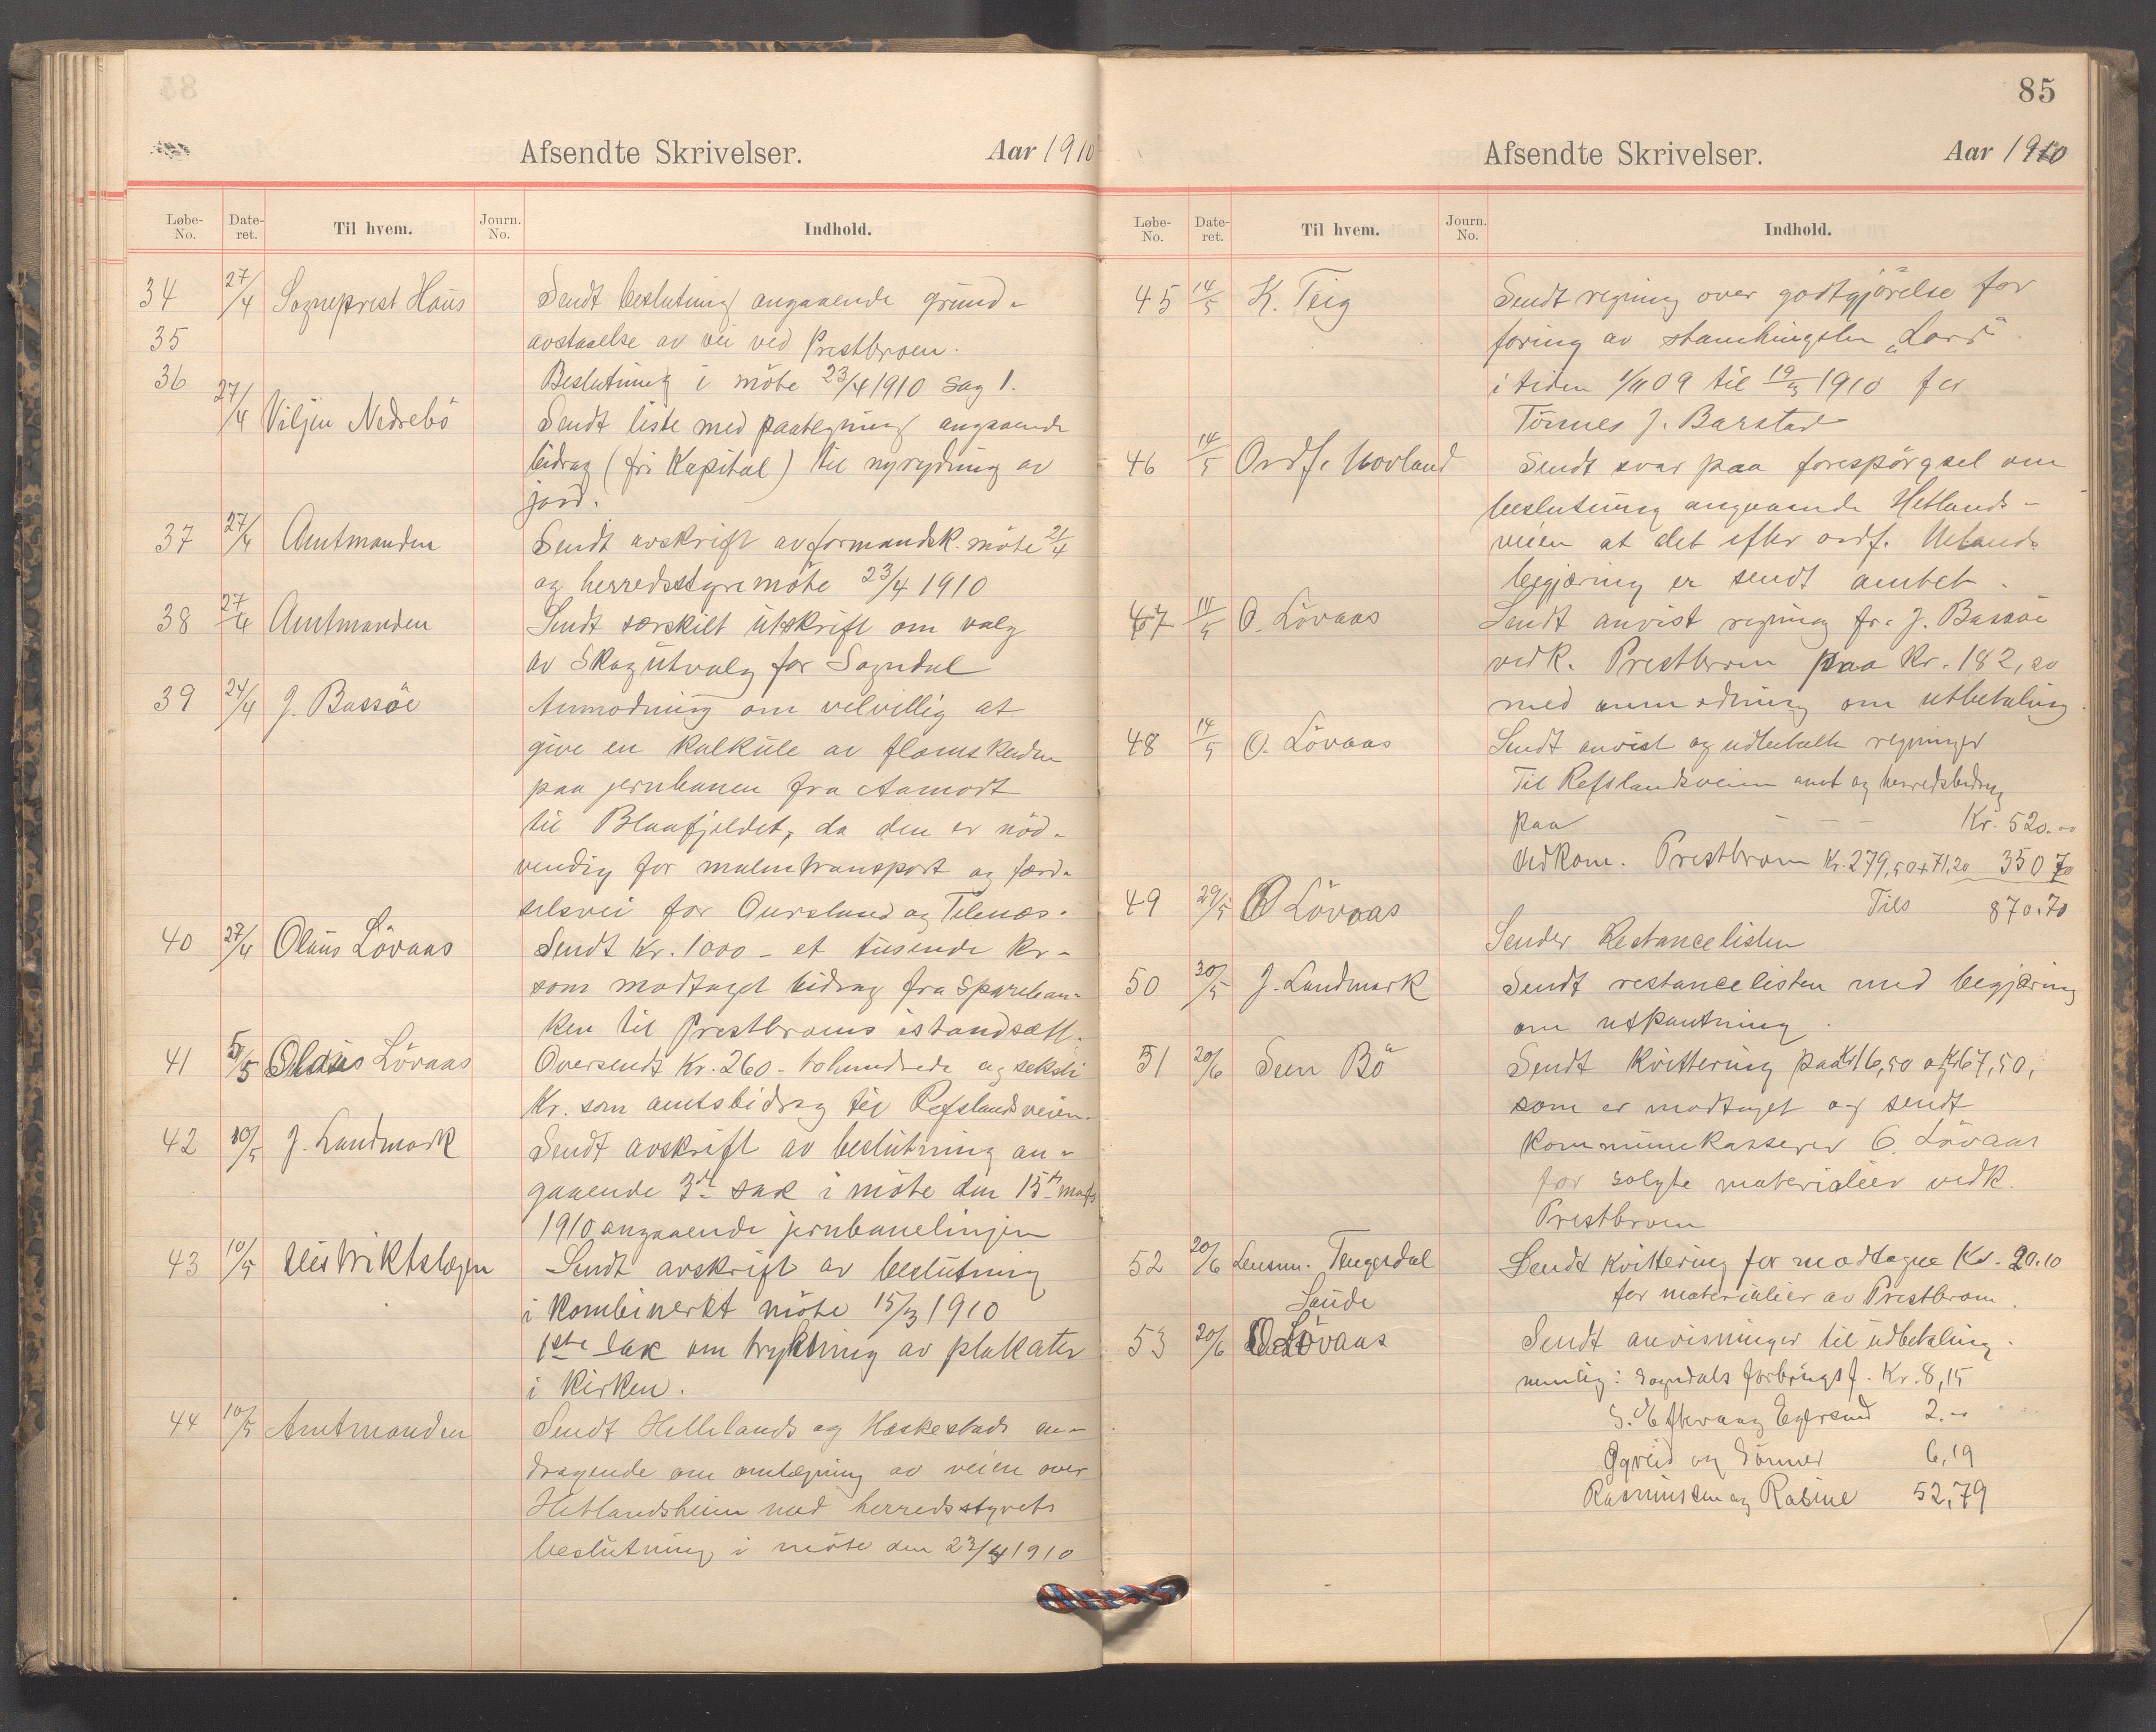 Afsendte Skrivelser. Aar 1910
Løbe-No. Date-ret. Til hvem. Journ. No. Indhold.
34 27/4 Sogneprest Haus Sendt beslutning angaaende grund-
35 avstaaelse av vei ved Prestbroen.
36 Beslutning i möte 23/4 1910 Sag 1.
27/4 Viljen Nedrebö Sendt liste med paategning angaaende
bidrag (fri Kapital) til nyrydning av
jord.
37 27/4 Amtmanden Sendt avskrift av formandsk. möte 21/4
og herredsstyremöte 23/4 1910
38 27/4 Amtmanden Sendt særskilt utskrift om valg
av Skogutvalg for Sogndal
39 24/4 J. Bassöe Anmodning om velvillig at
give en kalkule av
paa jernbanen fra Aamodt
til Blaafjeldet, da den er nöd-
vendig for malmtransport og færd-
selsvei for Oursland og Telenæs.
40 27/4 Olaus Lövaas Sendt Kr. 1000 - et tusende kr -
som modtaget bidrag fra Spareban-
ken til Prestbroens istandsætt.
41 5/5 Olaus Lövaas Oversendt Kr. 260 - tohundrede og seksti
Kr. som amtsbidrag til Refslandsveien.
42 10/5 J. Landmark Sendt avskrift av beslutning an-
gaaende 3die sak i möte den 15de mars
1910 angaaende jernbanelinjen
43 10/5 Distriktslægen Sendt avskrift av beslutning
i kombinerkt möte 15/3 1910
1ste sak om trykning av plakater
i kirken.
44 10/5 Amtmanden Sendt Hellelands og Heskestads an-
dragende om omlægning av veien over
Hetlandsheien med herredsstyrets
beslutning i möte den 23/4 1910
85
Afsendte Skrivelser. Aar 1910
Løbe-No. Date-ret. Til hvem. Journ. No. Indhold.
45 14/5 K. Teig Sendt regning over godtgjörelse for
foring av stamhingsten "Lars"
i tiden 1/11 09 til 19/3 1910 fra
Tönnes J. Barstad
46 14/5 Ordf. Hovland Sendt svar paa forespörgsel om
beslutning angaaende Hetlands-
veien at det efter ordf.
begjæring er sendt amtet.
47 14/5 O. Lövaas Sendt anvist regning fra J. Bassöe
vedk. Prestbroen paa Kr. 182,20
med anmodning om utbetaling.
48 14/5 O. Lövaas Sendt anvist og udbetalte regninger
Til Refslandsveien amt og herredsbidrag
paa — — — Kr. 520.00
Vedkom. Prestbroen Kr. 279,50+71,20 350 70
Tils 870.70
49 29/5 O Lövaas
Sender Restancelisten
50 30/5 J. Landmark Sendt restancelisten med begjæring
om utpantning.
51 20/6 Sven Bö Sendt kvittering paa Kr 16,50 og Kr 67,50,
som er modtaget og sendt
kommunekasserer O. Lövaas
for solgte materialier vedk.
Prestbroen
52 20/6 Lensm. Tengesdal Sendt kvittering for modtagne Kr. 20.10
Sande for materialier av Prestbroen.
53 20/6 O. Lövaas Sendt anvisninger til udbetaling.
nemlig: Sogndals forbrugsf. Kr. 8,15
S. Eftevaag Egersund 2.-
og Sönner 6,19
Rasmussen og Rasine 52,79